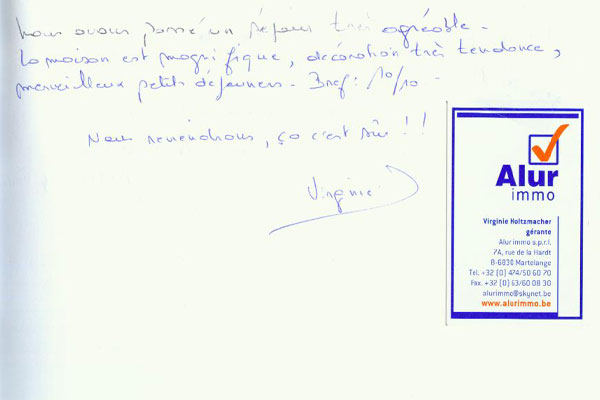 Nous avons passé un séjour très agréable.
La maison est magnifique, décoration très tendance,
merveilleux petits déjeuners. Bref: 10/10.
Nous reviendrons, ça c'est sûr !!
Virginie
Alur
immo
Virginie Holtzmacher
gérante
Alur immo s.p.r.l.
7A, rue de la Hardt
B-6630 Martelange
Tel. +32 (0) 474/50 60 70
Fax. +32 (0) 63/60 08 30
alurimmo@skynet.be
www.alurimmo.be